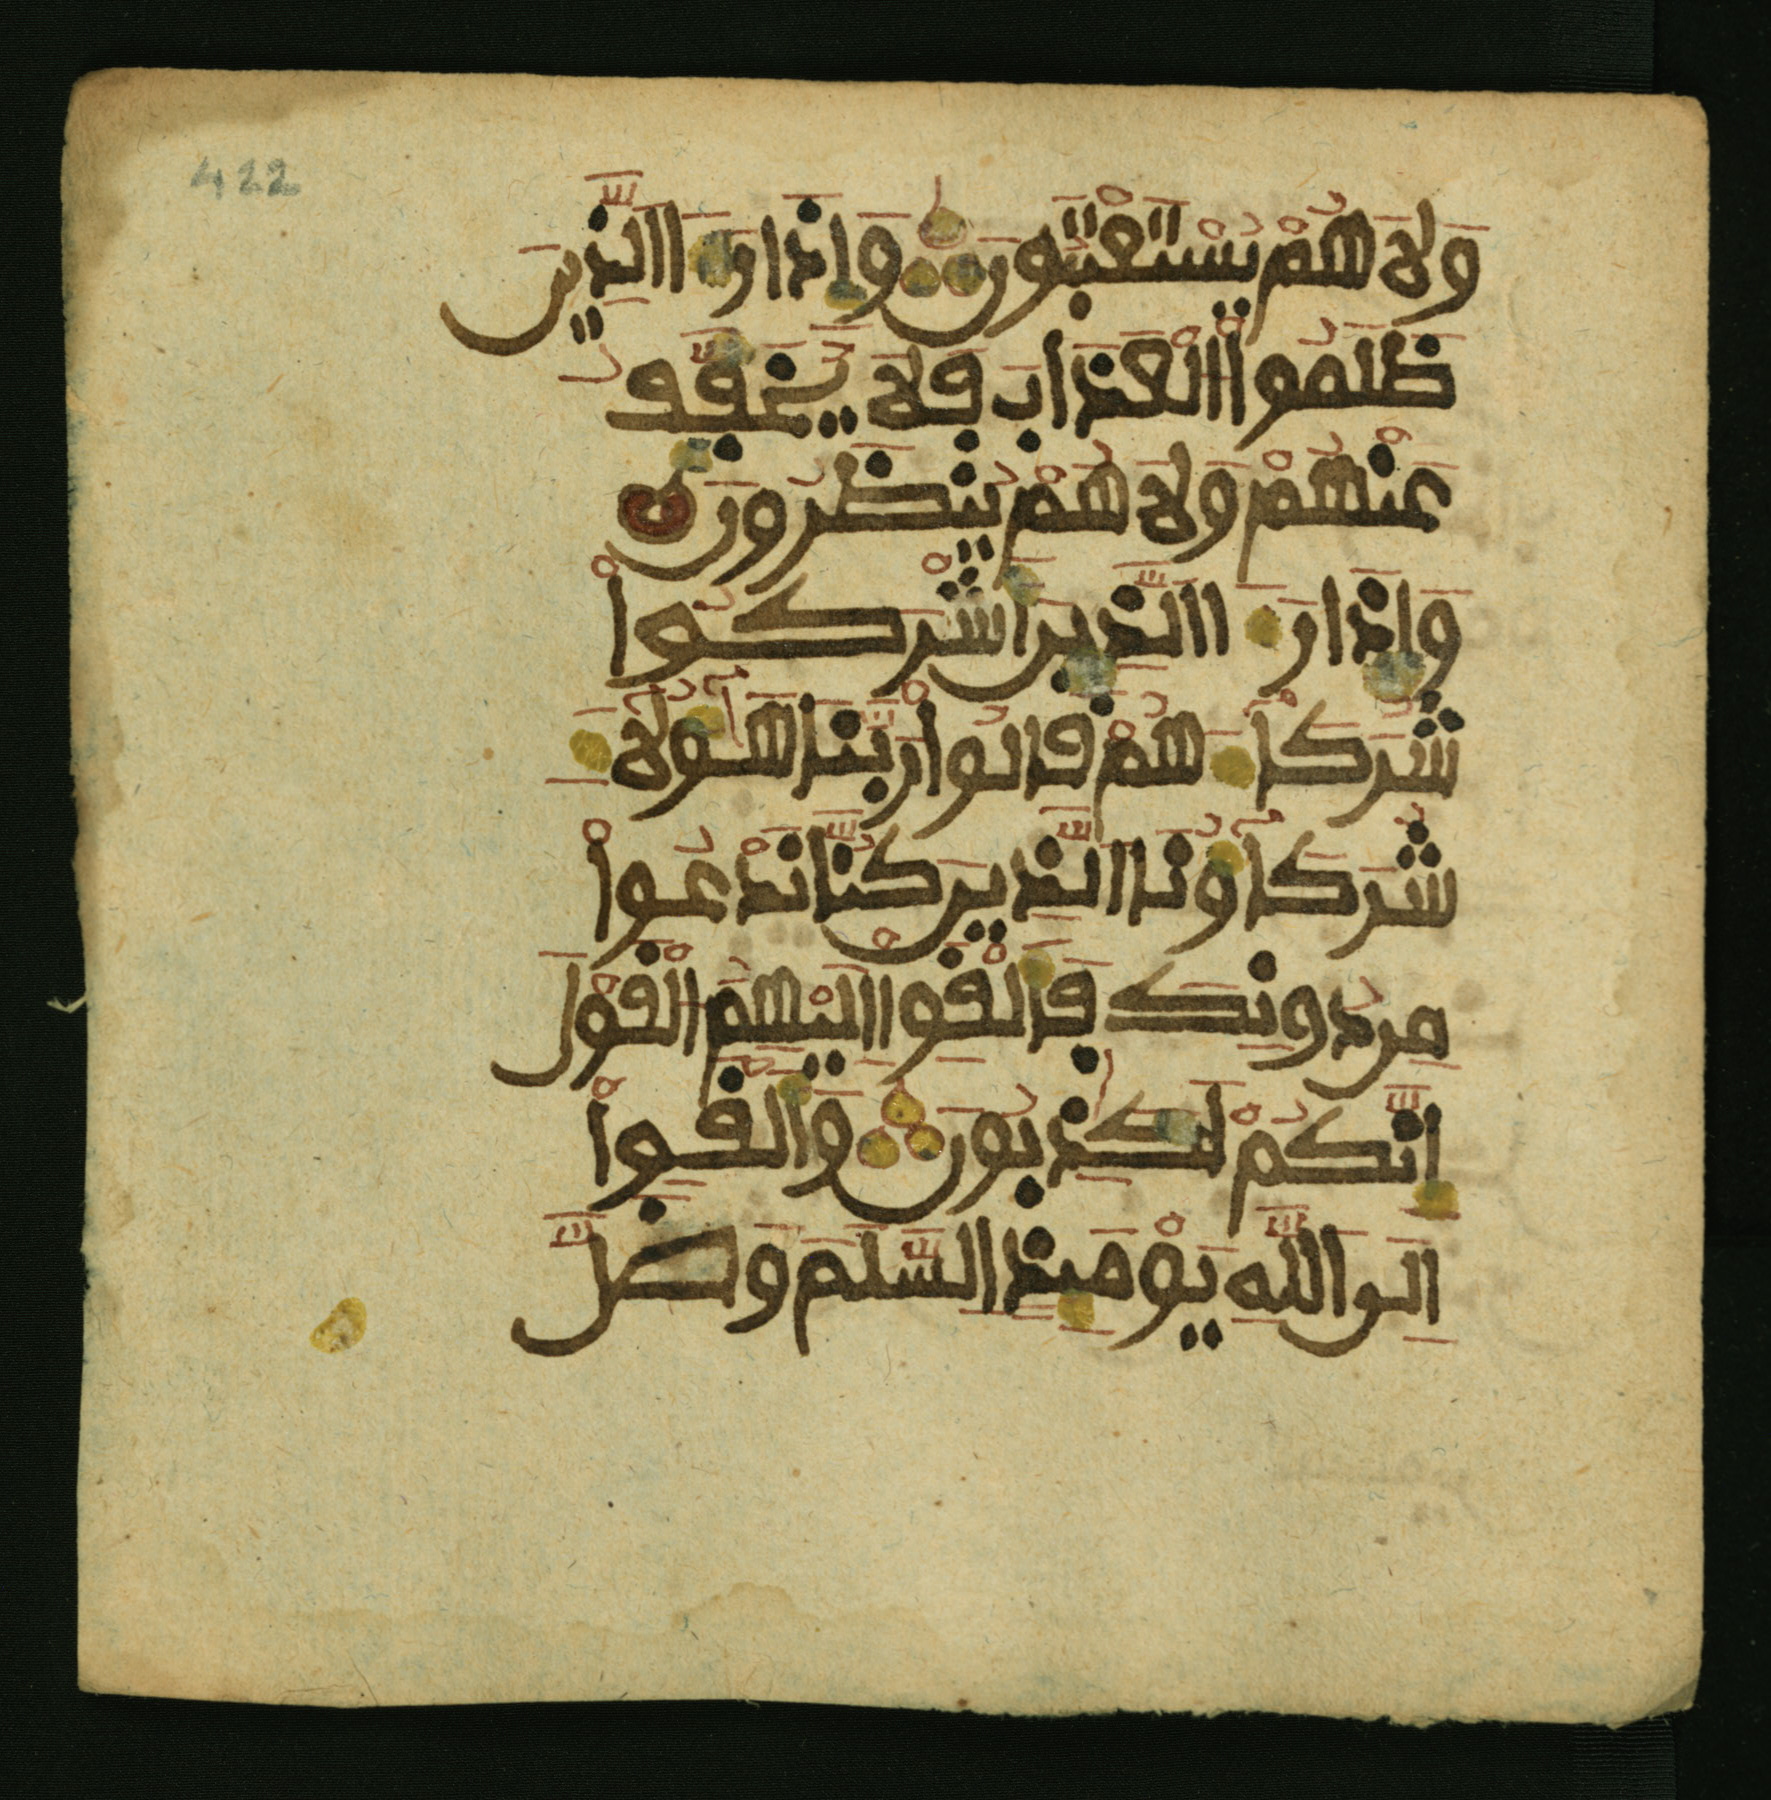 422
وَلَا هُمْ يُسْتَعْتَبُونَ وَإِذَا رَءَا اَ۬لذِينَ
ظَلَمُوا اُ۬لْعَذَابَ فَلَا يُخَفَّفُ
عَنْهُمْ وَلَا هُمْ يُنظَرُونَ
وَإِذَا رَءَا اَ۬لذِينَ أَشْرَكُواْ
شُرَكَآءَهُمْ قَالُواْ رَبَّنَا هَٰٓؤُلَآءِ
شُرَكَآؤُنَا اَ۬لذِينَ كُنَّا نَدْعُواْ
مِن دُونِكَ فَأَلْقَوِا اِلَيْهِمُ اُ۬لْقَوْلَ
إِنَّكُمْ لَكَٰذِبُونَ وَأَلْقَوِاْ
اِلَى اَ۬للَّهِ يَوْمَئِذٍ اِ۬لسَّلَمَ وَضَلَّ